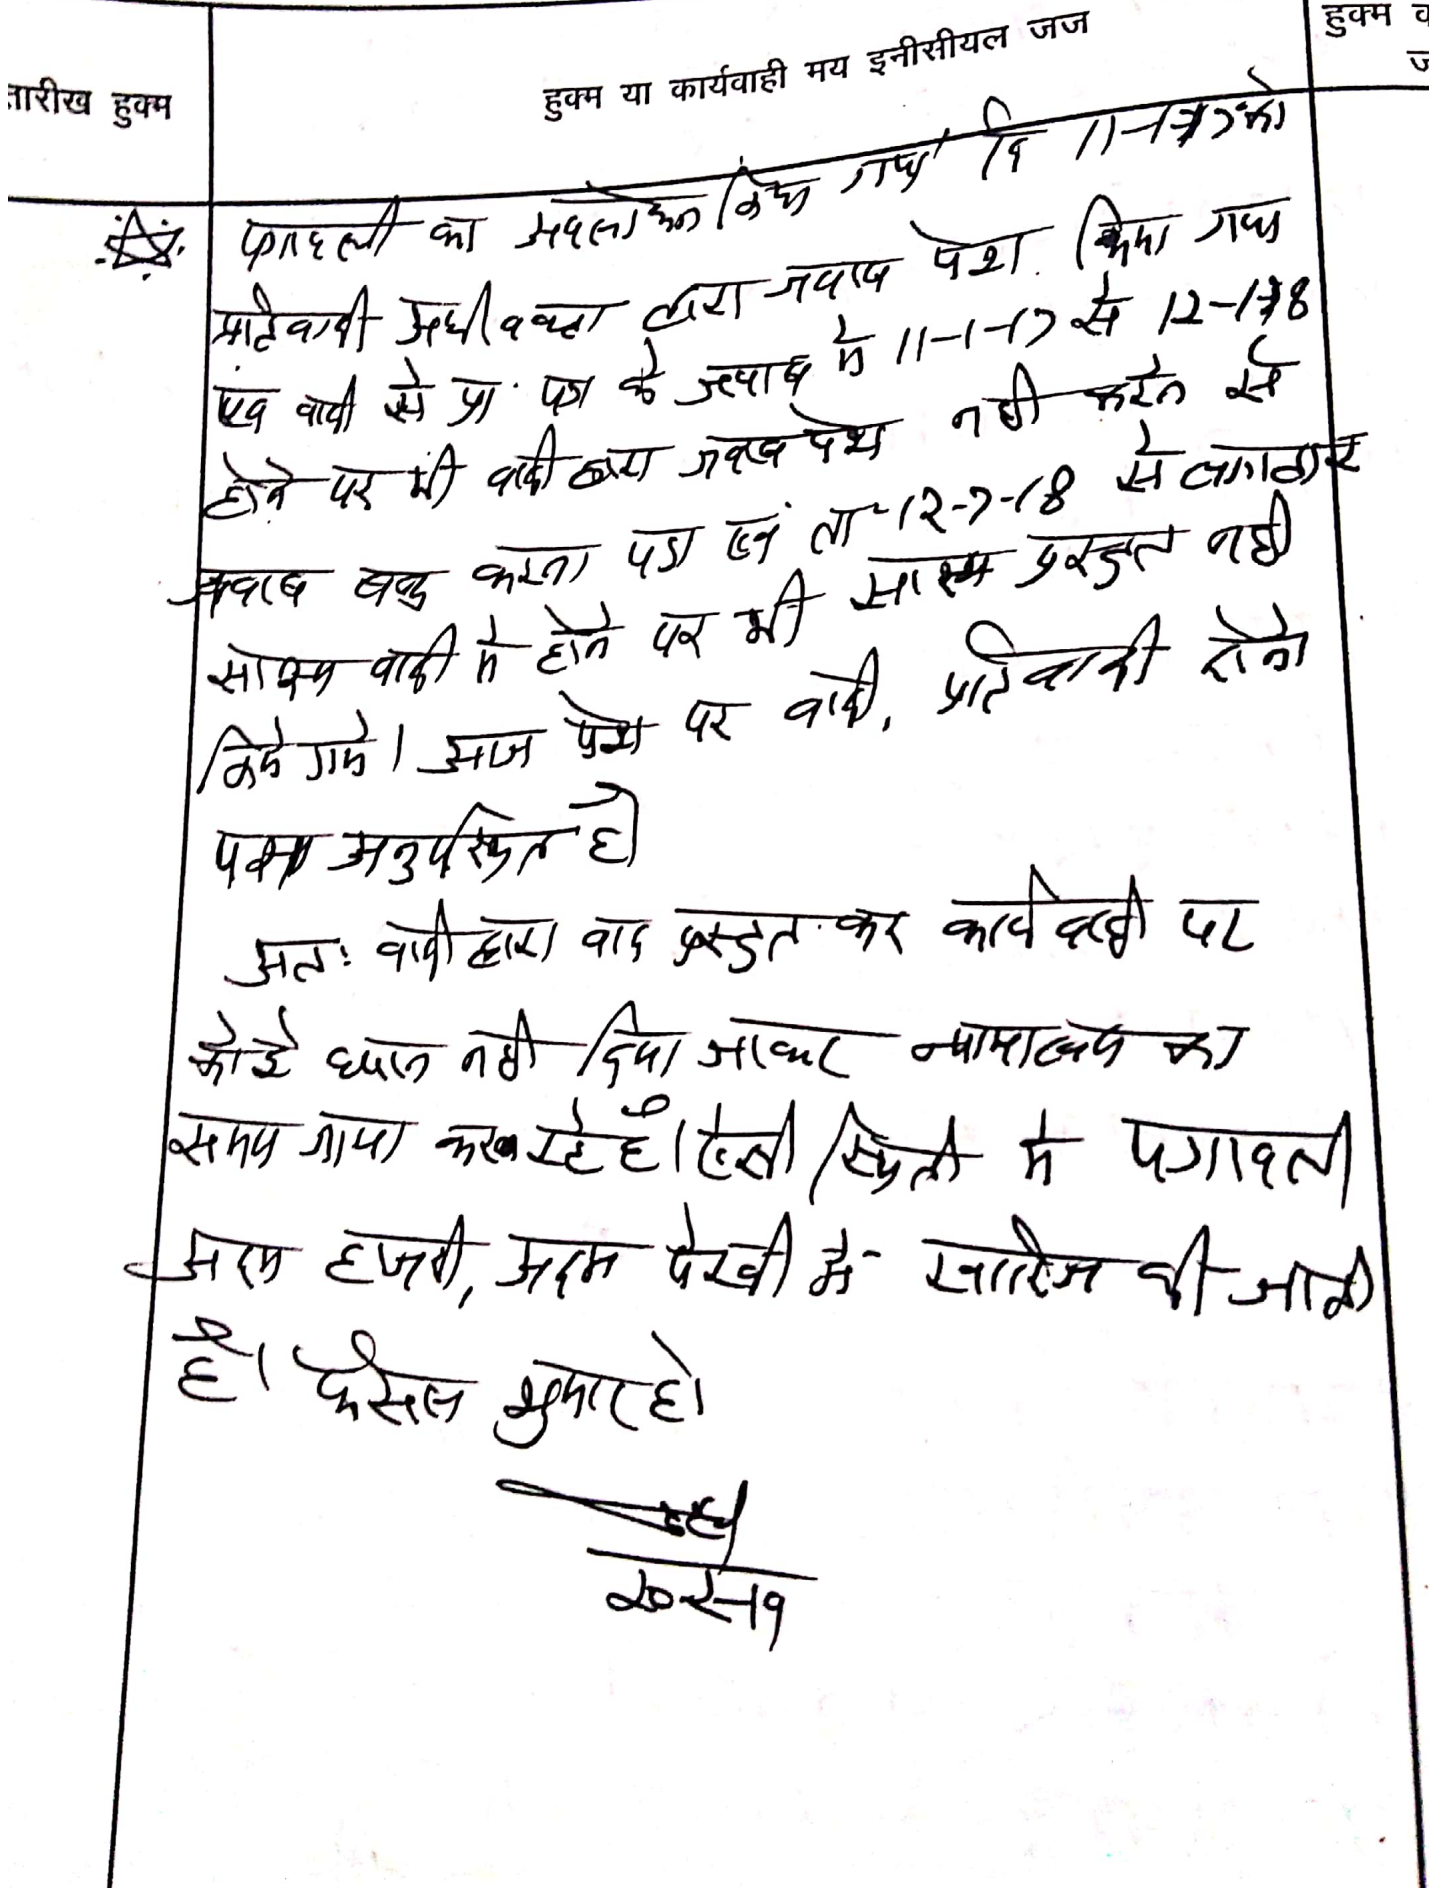 तारीख हुक्म
हुक्म या कार्यवाही मय इनीसीयल जज
हुक्म
पत्रावली का अवलोकन किया गया दि 11-1-17 को
प्रतिवादी अधीवक्ता द्वारा जवाब पेश किया गया
एंव वादी से प्रा. पत्र के जवाब मे 11-1-17 से 12-18
होने पर भी वादी द्वारा जवाब पेश नही करने से
जवाब बन्द करना पडा एवं ता-12-7-18 से लगातार
साक्ष्य वादी मे होने पर भी साक्ष्य प्रस्तुत नही
किये गये। आज पेशी पर वादी, प्रतिवादी दोनो
पक्ष अनुपस्थित है।
अतः वादी द्वारा वाद प्रस्तुत कर कार्यवाही पर
कोई ध्यान नही दिया जाकर न्यायालय का
समय जाया कर रहे है। ऐसी स्थिती मे पत्रावली
अदम हाजरी, अदम पेरवी मे खारिज की जाती
है। फैसल शुमार हो।